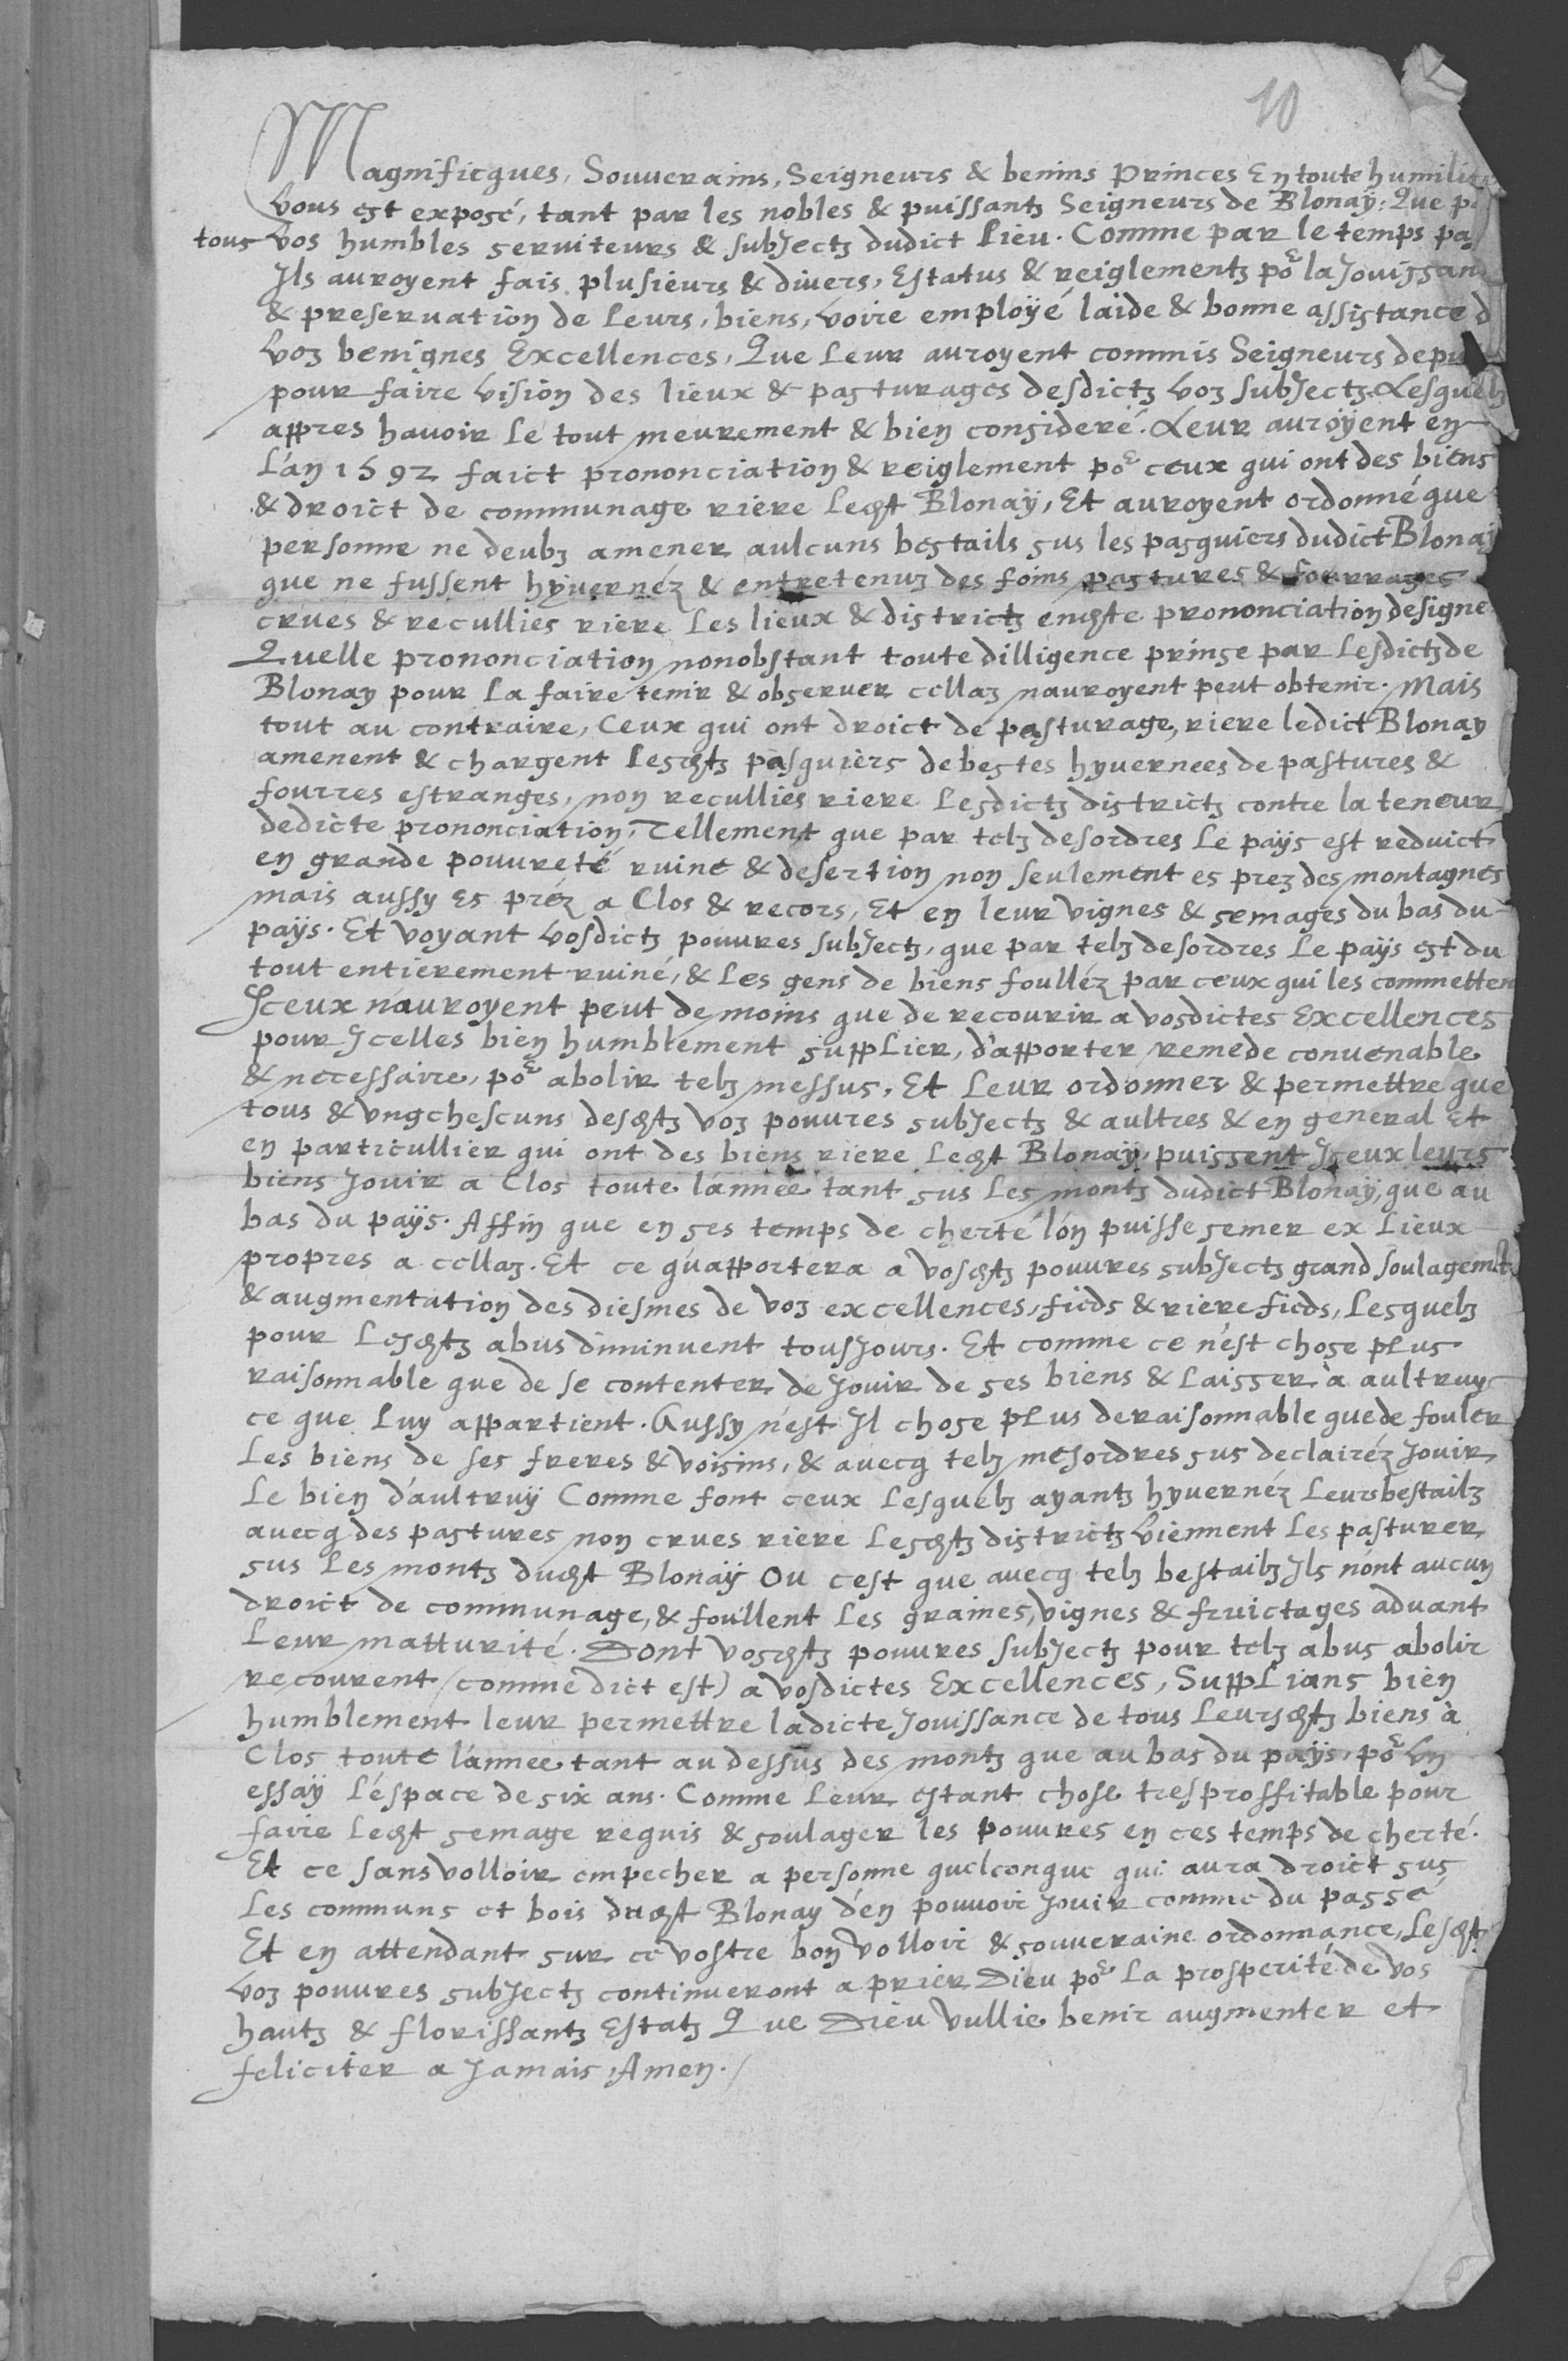 10
Magnificques, Souverains, Seigneurs & benins Princes En toute humilit
Vous est exposé, tant par les nobles & puissantz Seigneurs de Blonaÿ: Que p
tous Vos humbles serviteurs & subjectz dudict Lieu. Comme par le temps pa
Ils auroyent fais plusieurs & divers, Estatus & reiglementz po^r la Jouissan
& preservation de Leurs, biens, voire employé laide & bonne assistance d
Voz benignes Excellences, Que Leur auroyent commis Seigneurs depu
pour faire vision des lieux & pasturages desdictz voz subjectz. Lesquelz
appres havoir Le tout meurement & bien consideré. Leur auroyent en
L'an 1592 faict prononciation & reiglement po^r ceux qui ont des biens
& droict de communage riere Ledt Blonaÿ, Et auroyent ordonné que
personne ne deubz amener aulcuns bestails sus les pasquiers dudict Blonaÿ
que ne fussent hÿvernéz & entretenuz des foins pastures & fourrages
crues & recullies riere Les lieux & districtz endte prononciation designe
Quelle prononciation nonobstant toute dilligence prinse par Lesdictz de
Blonay pour La faire tenir & observer cellaz nauroyent peut obtenir. Mais
tout au contraire, Ceux qui ont droict de pasturage, riere ledict Blonay
amenent & chargent Lesdtz pasquiers de bestes hyvernees de pastures &
fourres estranges, non recullies riere Lesdictz districtz contre la teneur
dedicte prononciation, Tellement que par telz desordres Le paÿs est reduict
en grande pouvreté ruine & desertion non seulement es prez des montagnes
mais aussy es préz a Clos & recors, Et en leur vignes & semages du bas du
paÿs. Et voyant vosdictz pouvres subjectz, que par telz desordres Le paÿs est du
tout entierement ruiné, & Les gens de biens foulléz par ceux qui les commetten
Iceux n'auroyent peut de moins que de recourir a vosdictes Excellences
pour Icelles bien humblement suppLier, d'apporter remede convenable
& necessaire, po^r abolir telz messus, Et Leur ordonner & permettre que
tous & ungchescuns desdtz voz pouvres subjectz & aultres & en general Et
en particullier qui ont des biens riere Ledt Blonaÿ, puissent Iceux leurs
biens Jouir a Clos toute l'année tant sus Les montz dudict Blonaÿ, que au
bas du paÿs. Affin que en ses temps de cherté l'on puisse semer ex Lieux
propres a cellaz. Et ce qu'apportera a vosdtz pouvres subjectz grand soulagemt
& augmentation des diesmes de voz excellences, fieds & riere fieds, Lesquelz
pour Lesdtz abus diminuent tousjours. Et comme ce n'est chose pLus
raisonnable que de se contenter de Jouir de ses biens & Laisser à aultruy
ce que Luy appartient. Aussy n'est Il chose pLus deraisonnable que de fouler
Les biens de ses freres & voisins, & avecq telz mesordres sus declairéz Jouir
Le bien d'aultruÿ Comme font ceux Lesquelz ayantz hyvernéz Leurs bestailz
avecq des pastures non crues riere Lesdtz districtz Viennent Les pasturer
sus Les montz dudt Blonaÿ Ou cest que avecq telz bestailz Ils nont aucun
droict de communage, & foullent Les graines, vignes & fruictages advant
Leur matturité. Dont vosdtz pouvres subjectz pour telz abus abolir
recourent (comme dict est) a vosdictes Excellences, SuppLians bien
humblement leur permettre ladicte Jouissance de tous Leursdtz biens à
Clos toute l'annee tant au dessus des montz que au bas du paÿs, po^r Un
essaÿ L'espace de six ans. Comme Leur estant chose tresproffitable pour
faire Ledt semage requis & soulager les pouvres en ces temps de cherté.
Et ce sans volloir empecher a personne quelconque qui aura droict sus
Les communs et bois dudt Blonay d'en pouvoir Jouir comme du passé
Et en attendant sur ce vostre bon volloir & souveraine ordonnance, Lesdt
Voz pouvres subjectz continueront a prier Dieu po^r La prosperité de vos
hautz & florissantz Estatz Que Dieu vullie benir augmenter et
feliciter a Jamais, Amen./